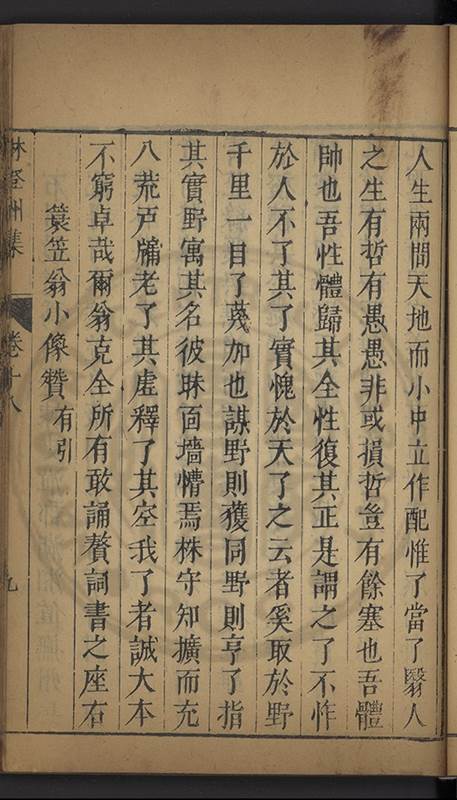 人生兩間天地而小中立作配惟了當了繄人
之生有哲有愚愚非或損哲豈有餘塞也吾體
帥也吾性體歸其全性復其正是謂之了不怍
於人不了其了實愧於天了之云者奚取於野
千里一目了蔑加也謀野則獲同野則亨了指
其實野寓其名彼昧面墻懵焉株守知擴而充
八荒戸牖老了其虛釋了其空我了者誠大本
不窮卓哉爾翁克全所有敢誦贅詞書之座右
蓑笠翁小像贊有引
林登州集 卷十八 九